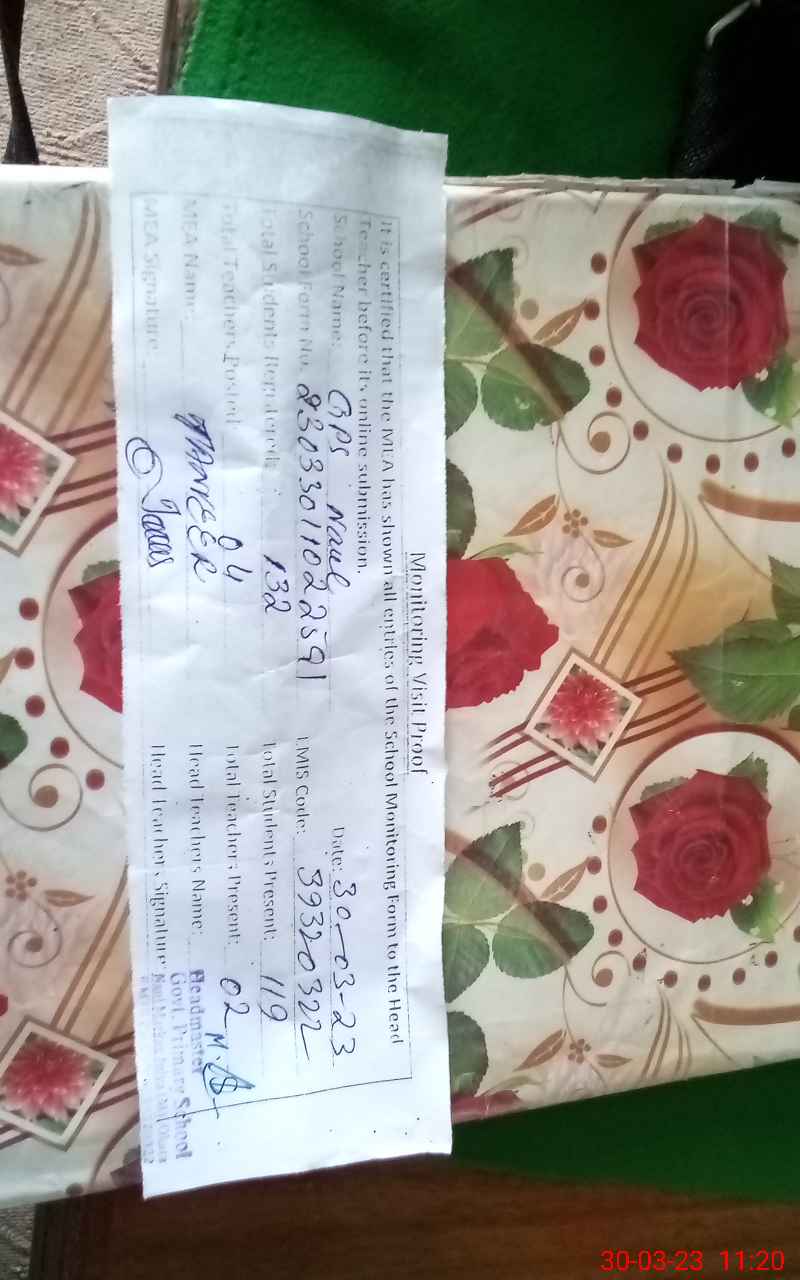 Monitoring Visit Proof
It is certified that the MEA has shown all entries of the School Monitoring Form to the Head
Teacher before its online submission.
School Name: GPS Naul Date: 30-03-23
School Form No. 23033011022591 EMIS Code: 39320322
Total Students Registered: 132 Total Students Present: 119
Total Teachers Posted: 04 Total Teachers Present: 02
MEA Name: TANVEER Head Teachers Name:
MEA Signature: Head Teachers Signature:
Headmaster
Govt. Primary School
30-03-23 11:20